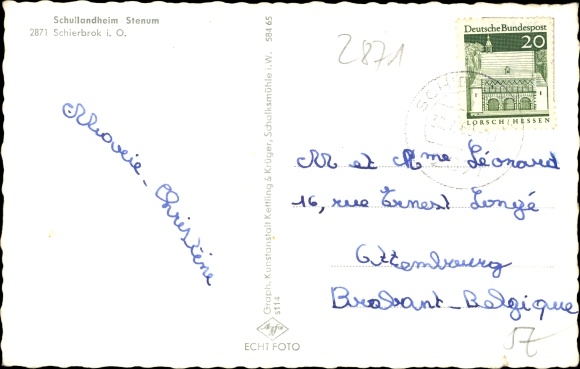 Schullandheim Stenum
2871 Schierbrok i. O.
2871
Deutsche Bundespost
20
LORSCH/HESSEN
Marie-Christine
Graph. Kunstanstalt Kettling & Krüger, Schalksmühle i.W. 58465
s114
Agfa
ECHT FOTO
M et Mme Léonard
16, rue Ernest Longé
Ottembourg
Brabant-Belgique
57